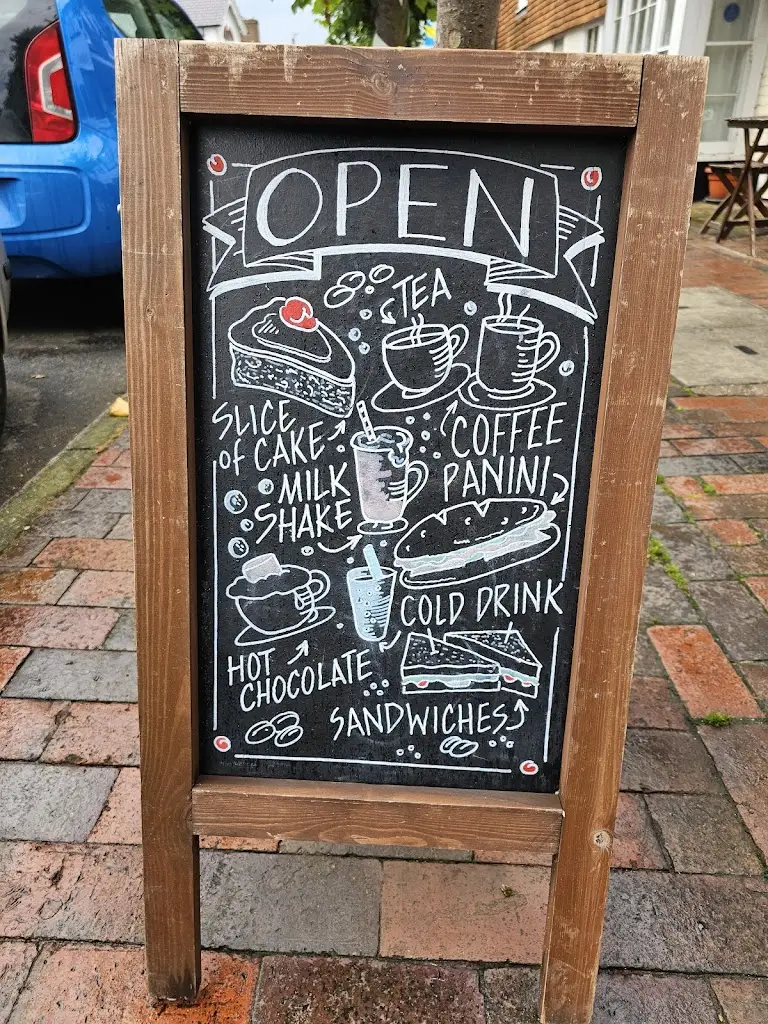 OPEN
TEA
SLICE
of CAKE
COFFEE
MILK
SHAKE
PANINI
COLD DRINK
HOT
CHOCOLATE
SANDWICHES